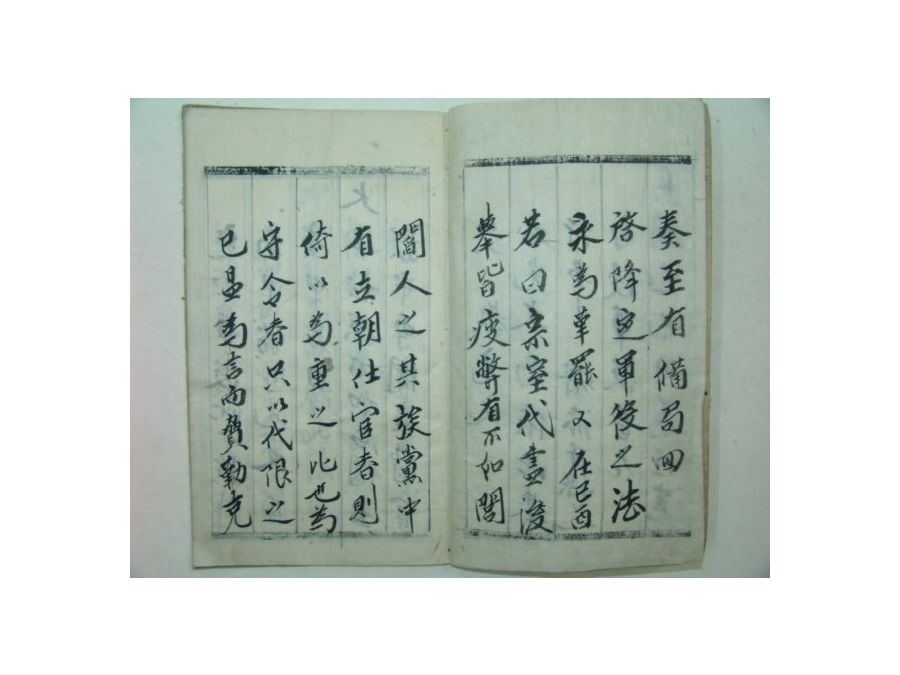 奏至有備局回
啓降定軍役之法
永為革罷又在己酉
若曰宗室代盡後
舉皆疲弊有不如閭
閻人之其族黨中
有立朝仕宦者則
倚以為重之比也為
守令者只以代限之
已盡為言而實勒充